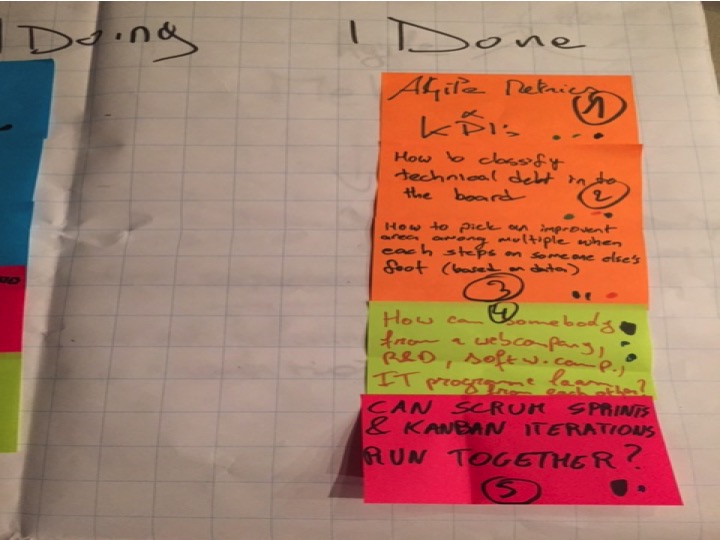 Doing
Done
Agile Metrics
&
KPI's
1
How to classify
technical debt in to
the board
2
How to pick an improvent
area among multiple when
each steps on someone else's
foot (based on data)
3
4
How can somebody
from a webcompany,
R&D, softw. comp.,
IT programe learn
from each other?
CAN SCRUM SPRINTS
& KANBAN ITERATIONS
RUN TOGETHER?
5